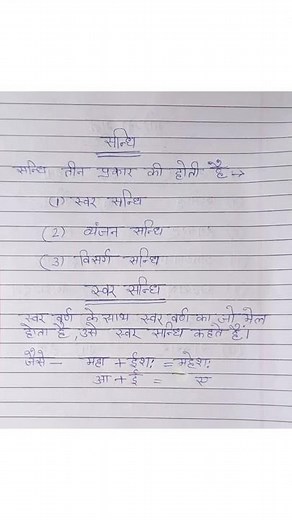 सन्धि
सन्धि तीन प्रकार की होती है →
(1) स्वर सन्धि
(2) व्यंजन सन्धि
(3) विसर्ग सन्धि
स्वर सन्धि
स्वर वर्ण के साथ स्वर वर्ण का जो मेल
होता है, उसे स्वर सन्धि कहते हैं।
जैसे — महा + ईशः = महेशः
आ + ई = ए